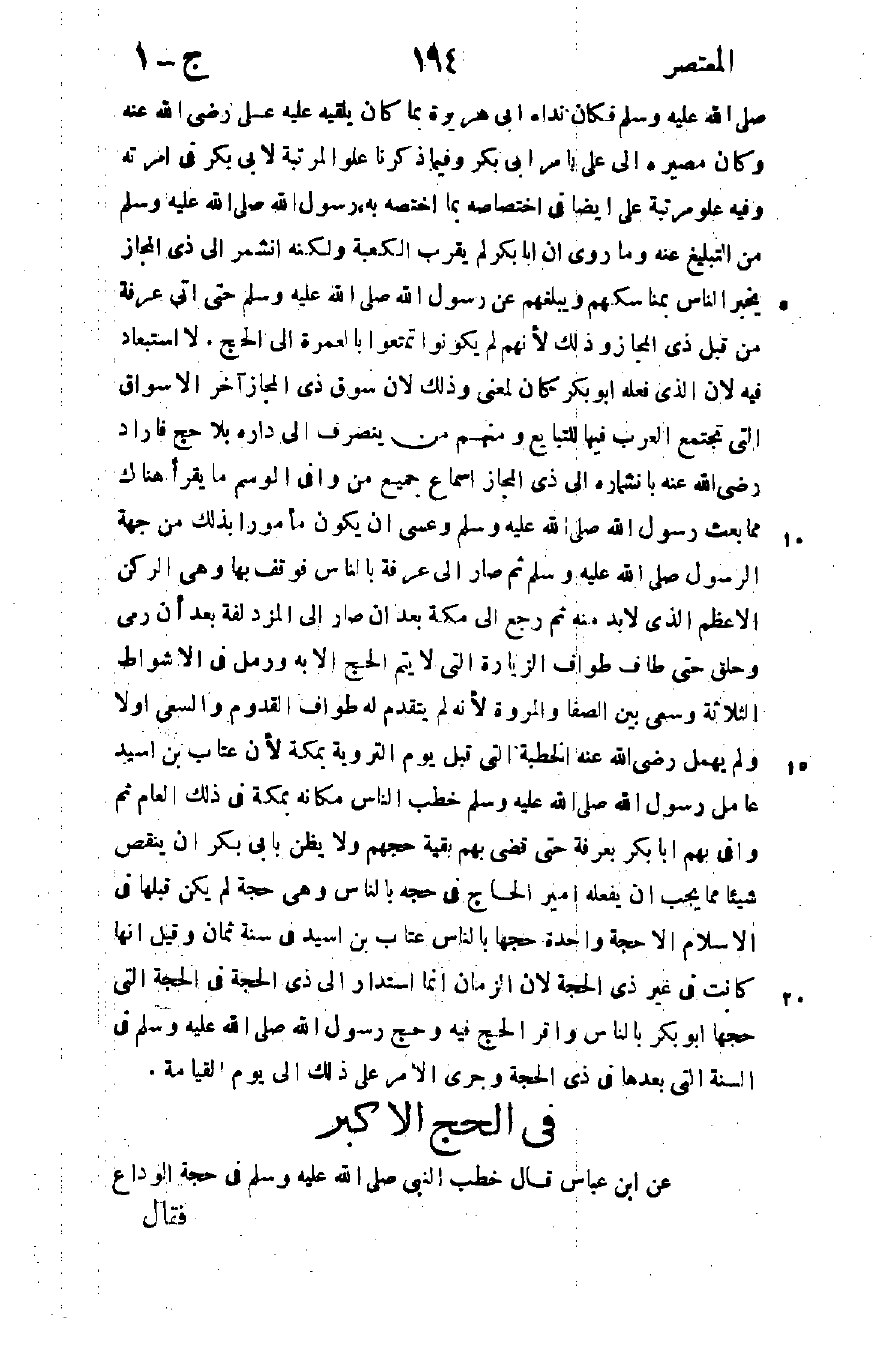 المعتصر ١٩٤ ج-١
صلى الله عليه وسلم فكان نداء ابى هريرة بما كان يلقيه عليه على رضى الله عنه
وكان مصيره الى على بامر ابى بكر وفيما ذكرنا علو المرتبة لابى بكر فى امرته
وفيه علو مرتبة على ايضا فى اختصاصه بما اختصه به رسول الله صلى الله عليه وسلم
من التبليغ عنه وما روى ان ابا بكر لم يقرب الكعبة ولكنه انشمر الى ذى المجاز
يخبر الناس بمناسكهم ويبلغهم عن رسول الله صلى الله عليه وسلم حتى اتى عرفة ٥
من قبل ذى المجاز وذلك لأنهم لم يكونوا تمتعوا بالعمرة الى الحج . لا استبعاد
فيه لان الذى فعله ابو بكر كان لمعنى وذلك لان سوق ذى المجاز آخر الاسواق
التى تجتمع العرب فيها للتبايع ومنهم من ينصرف الى داره بلا حج فاراد
رضى الله عنه بانشماره الى ذى المجاز اسماع جميع من وافى الوسم ما يقرأ هناك
مما بعث رسول الله صلى الله عليه وسلم وعسى ان يكون مأمورا بذلك من جهة ١٠
الرسول صلى الله عليه وسلم ثم صار الى عرفة بالناس فوقف بها وهى الركن
الاعظم الذى لابد منه ثم رجع الى مكة بعد ان صار الى المزدلفة بعد أن رمى
وحلق حتى طاف طواف الزيارة التى لا يتم الحج الا به ورمل فى الاشواط
الثلاثة وسعى بين الصفا والمروة لأنه لم يتقدم له طواف القدوم والسعى اولا
ولم يهمل رضى الله عنه الخطبة التى قبل يوم التروية بمكة لأن عتاب بن اسيد ١٥
عامل رسول الله صلى الله عليه وسلم خطب الناس مكانه بمكة فى ذلك العام ثم
وافى بهم ابا بكر بعرفة حتى قضى بهم بقية حجهم ولا يظن بابى بكر ان ينقص
شيئا مما يجب ان يفعله امير الحاج فى حجه بالناس وهى حجة لم يكن قبلها فى
الاسلام الا حجة واحدة حجها بالناس عتاب بن اسيد فى سنة ثمان وقيل انها
كانت فى غير ذى الحجة لان الزمان انما استدار الى ذى الحجة فى الحجة التى ٢٠
حجها ابو بكر بالناس واقر الحج فيه وحج رسول الله صلى الله عليه وسلم فى
السنة التى بعدها فى ذى الحجة وجرى الامر على ذلك الى يوم القيامة .
فى الحج الاكبر
عن ابن عباس قال خطب النبى صلى الله عليه وسلم فى حجة الوداع
فقال